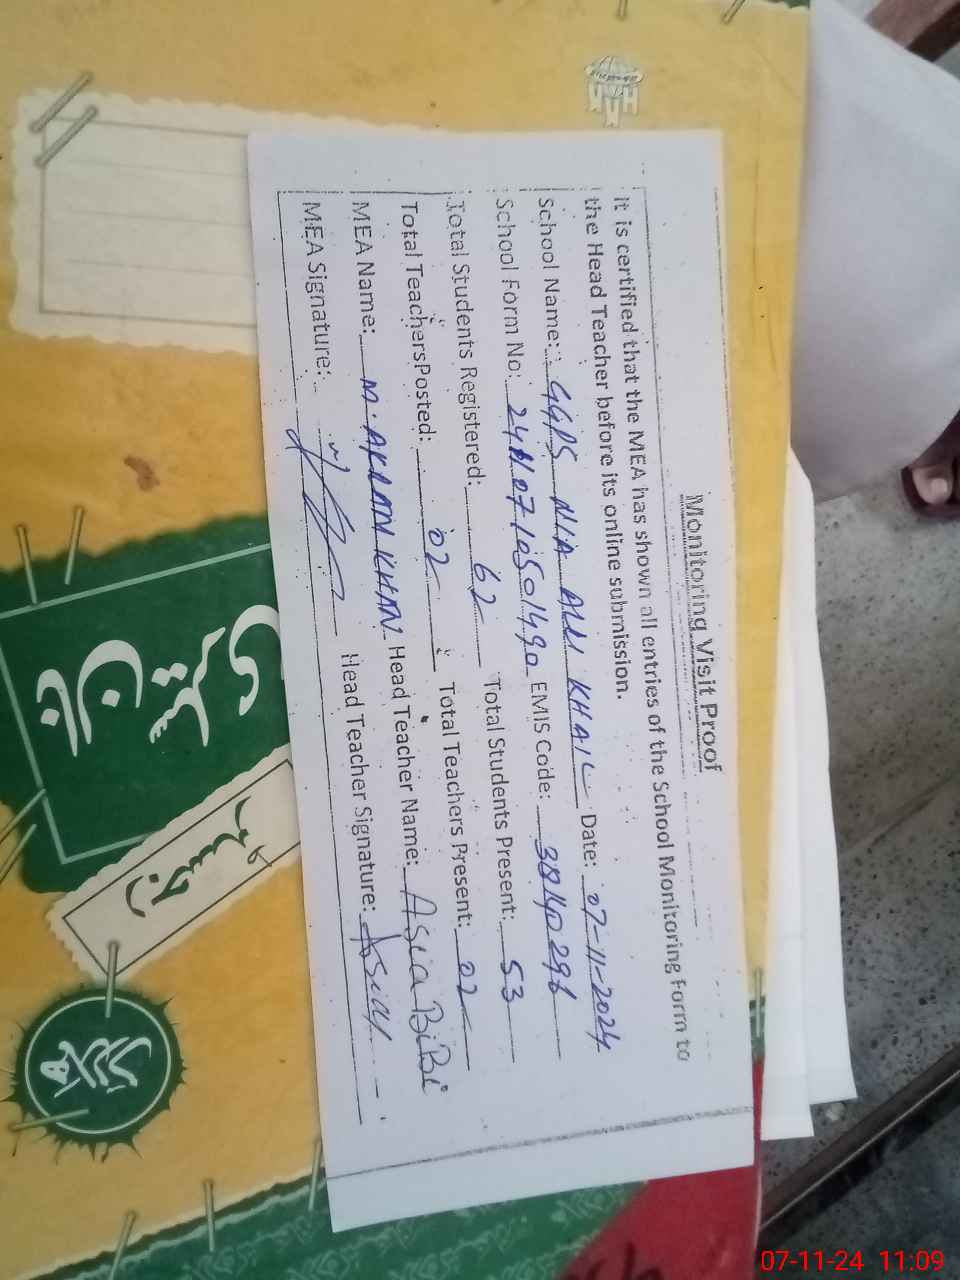 Monitoring Visit Proof
It is certified that the MEA has shown all entries of the School Monitoring Form to
the Head Teacher before its online submission.
School Name: GGPS NIA ALI KHAIL Date: 07-11-2024
School Form No: 24N071050149a EMIS Code: 38140296
Total Students Registered: 62 Total Students Present: 53
Total Teachers Posted: 02 Total Teachers Present: 02
MEA Name: M. AKRAM KHAN Head Teacher Name: Asia BiBi
MEA Signature: Head Teacher Signature: Asia
07-11-24 11:09